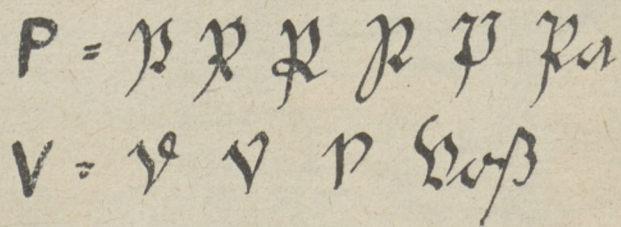 P = P P P P P Pa
V = V V V Voß